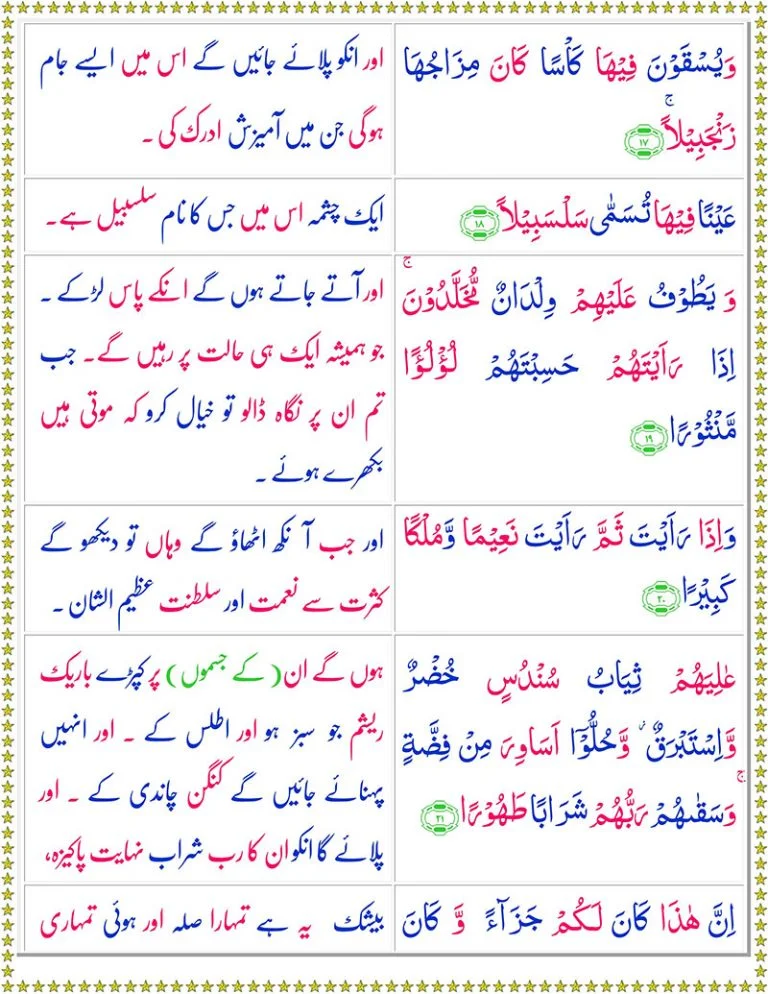 وَيُسْقَوْنَ فِيْهَا كَاْسًا كَانَ مِزَاجُهَا
زَنْجَبِيْلًا ۚ ١٧
اور انکو پلائے جائیں گے اس میں ایسے جام
ہوگی جن میں آمیزش ادرک کی ۔
عَيْنًا فِيْهَا تُسَمّٰى سَلْسَبِيْلًا ١٨
ایک چشمہ اس میں جس کا نام سلسبیل ہے۔
وَ يَطُوْفُ عَلَيْهِمْ وِلْدَانٌ مُّخَلَّدُوْنَ ۚ
اِذَا رَاَيْتَهُمْ حَسِبْتَهُمْ لُؤْلُؤًا
مَّنْثُوْرًا ١٩
اور آتے جاتے ہوں گے انکے پاس لڑکے ۔
جو ہمیشہ ایک ہی حالت پر رہیں گے۔ جب
تم ان پر نگاہ ڈالو تو خیال کرو کہ موتی ہیں
بکھرے ہوئے ۔
وَاِذَا رَاَيْتَ ثَمَّ رَاَيْتَ نَعِيْمًا وَّمُلْكًا
كَبِيْرًا ٢٠
اور جب آنکھ اٹھاؤ گے وہاں تو دیکھو گے
کثرت سے نعمت اور سلطنت عظیم الشان ۔
عٰلِيَهُمْ ثِيَابُ سُنْدُسٍ خُضْرٌ
وَّاِسْتَبْرَقٌ ۫ وَّحُلُّوْۤا اَسَاوِرَ مِنْ فِضَّةٍ ۚ
وَسَقٰىهُمْ رَبُّهُمْ شَرَابًا طَهُوْرًا ٢١
ہوں گے ان (کے جسموں) پر کپڑے باریک
ریشم جو سبز ہو اور اطلس کے ۔ اور انہیں
پہنائے جائیں گے کنگن چاندی کے ۔ اور
پلائے گا انکو ان کا رب شراب نہایت پاکیزہ،
اِنَّ هٰذَا كَانَ لَكُمْ جَزَآءً وَّ كَانَ
بیشک یہ ہے تمہارا صلہ اور ہوئی تمہاری